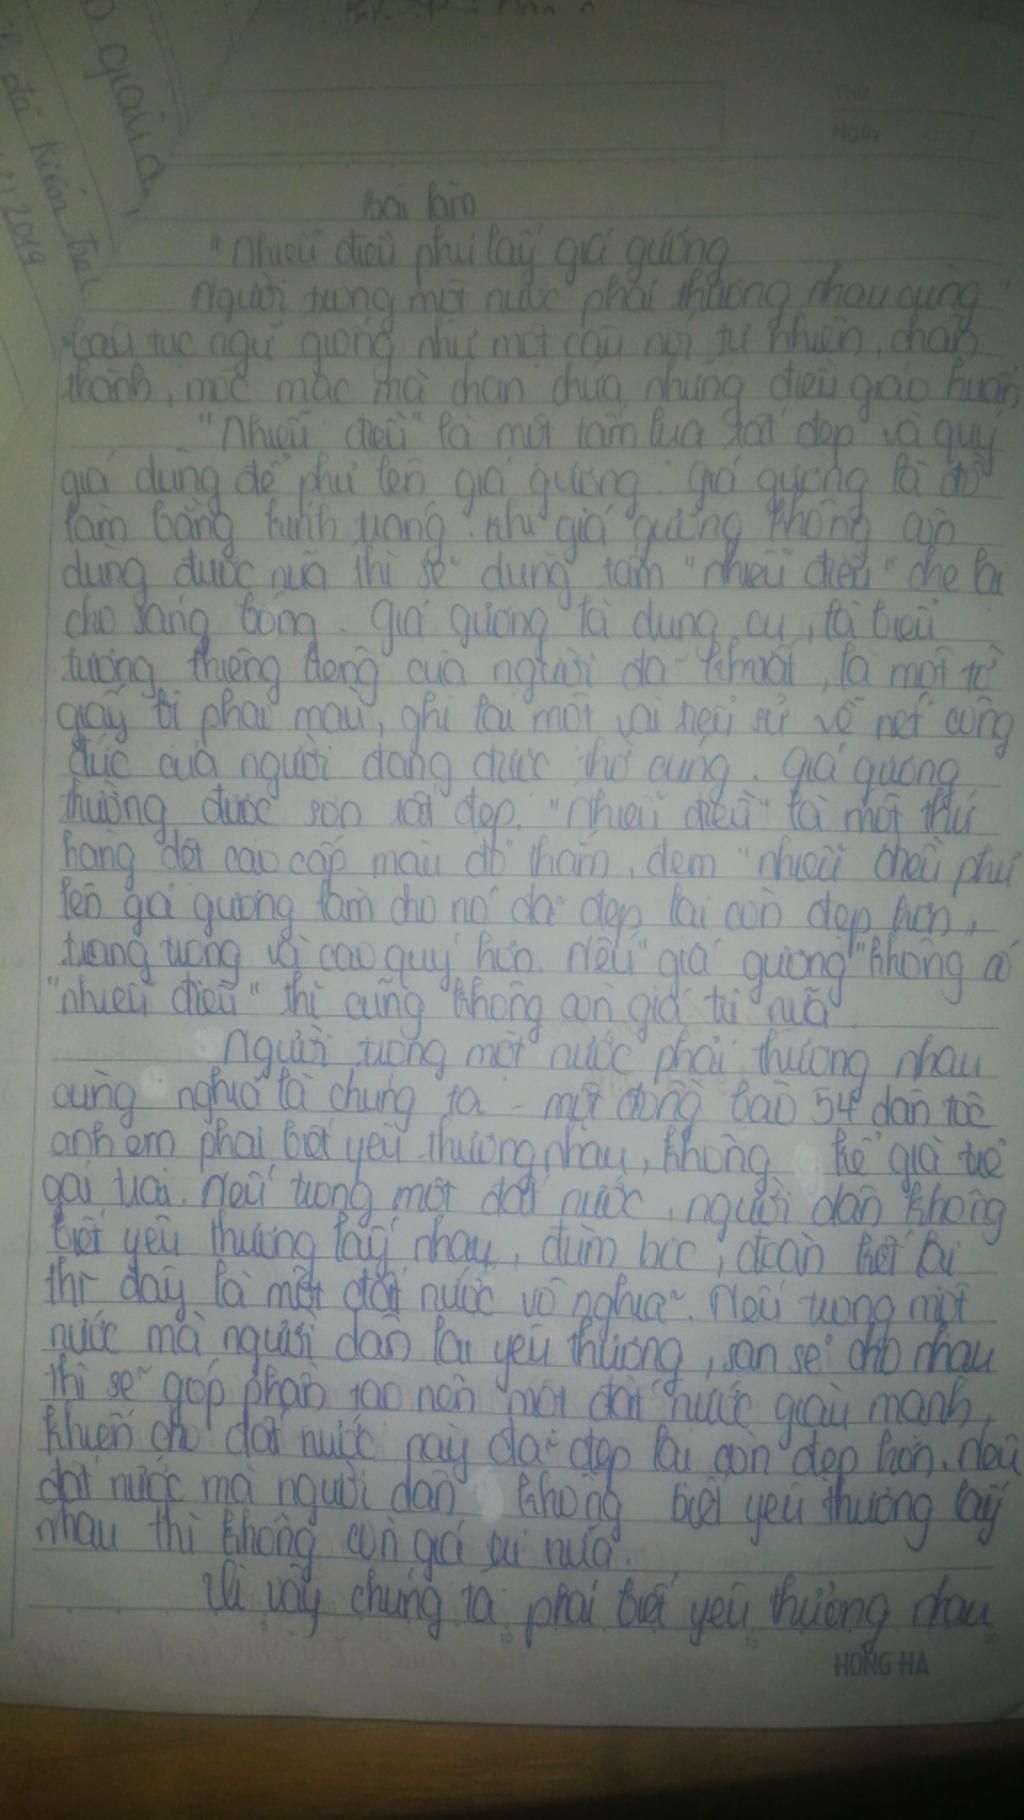 Bài làm
"Nhiễu điều phủ lấy giá gương
Người trong một nước phải thương nhau cùng"
Câu tục ngữ giống như một câu nói tự nhiên, chân
thành, mộc mạc mà chan chứa những điều giáo huấn
"Nhiễu điều" là một tấm lụa rất đẹp và quý
giá dùng để phủ lên giá gương. giá gương là đồ
làm bằng kính tráng. Khi giá gương không còn
dùng được nữa thì sẽ dùng tấm "nhiễu điều" che lại
cho sáng bóng. Giá gương là dụng cụ, là biểu
tượng thiêng liêng của người đã khuất, là một tờ
giấy bị phai màu, ghi lại một vài tiểu sử về nét công
đức của người đang được thờ cúng. Giá gương
thường được sơn rất đẹp. "Nhiễu điều" là một thứ
hàng dệt cao cấp màu đỏ thắm, đem "nhiễu điều phủ
lên giá gương làm cho nó đã đẹp lại còn đẹp hơn,
trang trọng và cao quý hơn. Nếu "giá gương" không có
"nhiễu điều" thì cũng không còn giá trị nữa
Người trong một nước phải thương nhau
cùng nghĩa là chúng ta - một đồng bào 54 dân tộc
anh em phải biết yêu thương nhau, không kể già trẻ
gái trai. Nếu trong một đất nước, người dân không
biết yêu thương lấy nhau, đùm bọc, đoàn kết lại
thì đây là một đất nước vô nghĩa. Nếu trong một
nước mà người dân lại yêu thương, san sẻ cho nhau
thì sẽ góp phần tạo nên một đất nước giàu mạnh,
khiến cho đất nước này đã đẹp lại còn đẹp hơn. Nếu
đất nước mà người dân không biết yêu thương lấy
nhau thì không còn giá trị nữa.
Vì vậy chúng ta phải biết yêu thương nhau
HONG HA
THỨ
NGÀY
đã kiểm tra
2019